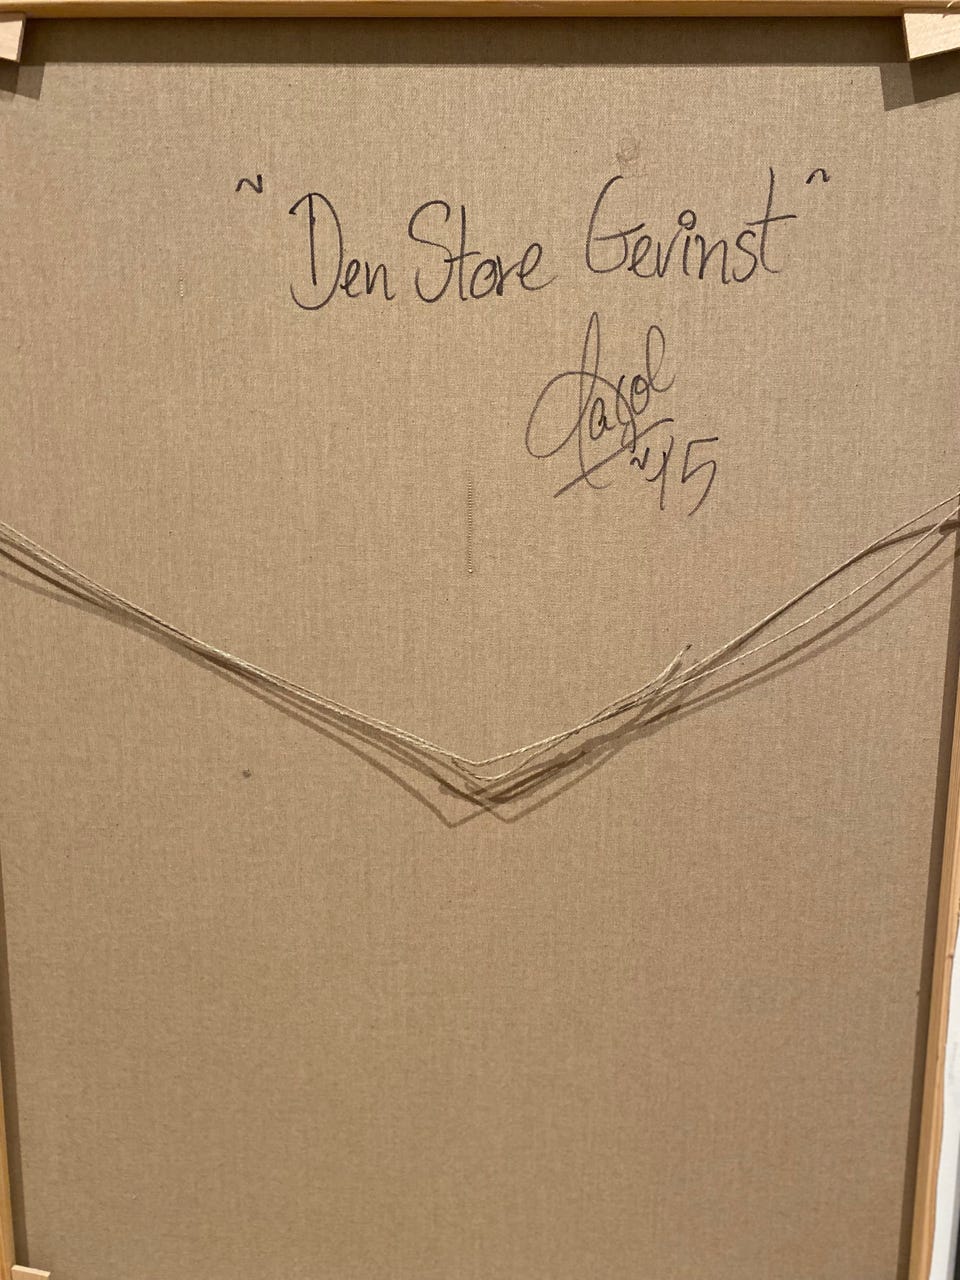 ~ Den Store Gevinst ~
~15